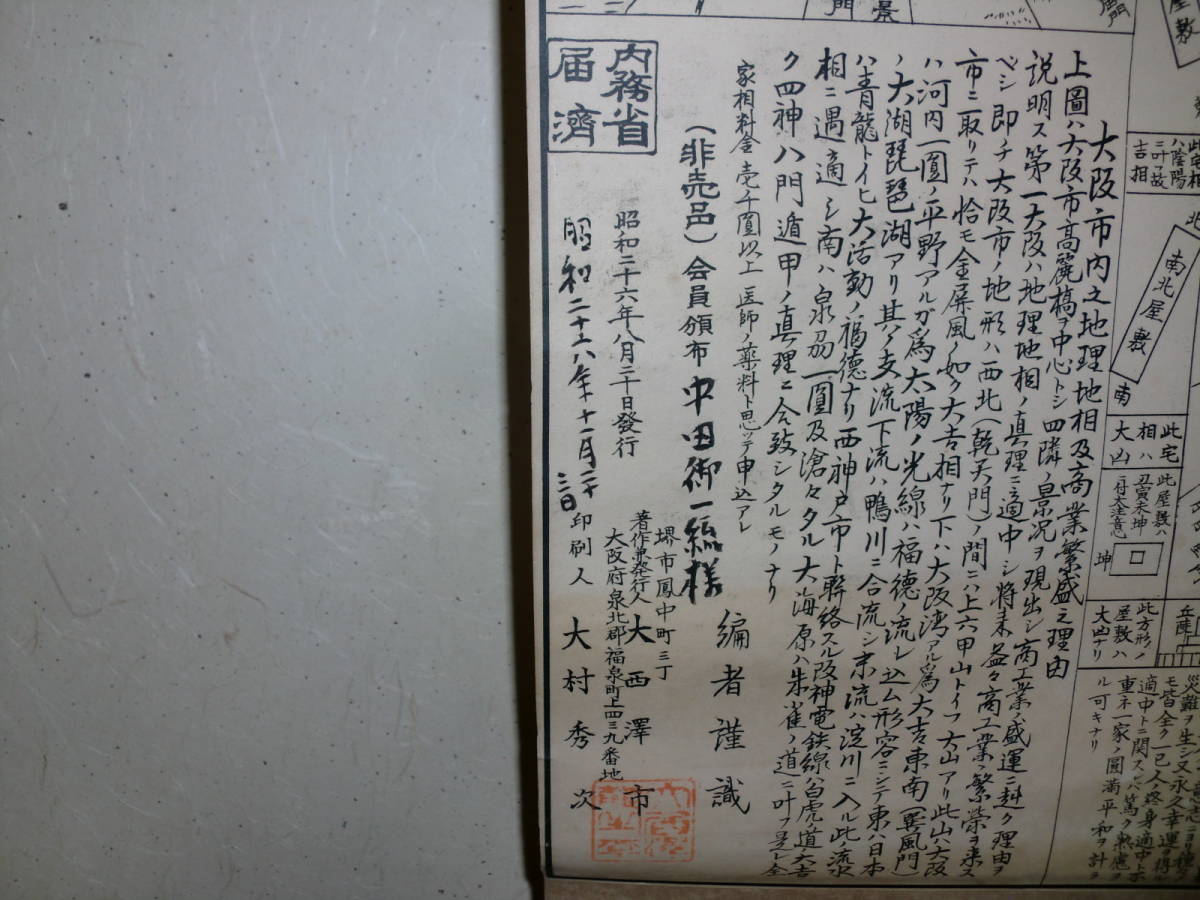 大阪市内之地理地相及商業繁盛之理由
上圖ハ大阪市高麗橋ヲ中心トシ四隣ノ景況ヲ現出シ商工業ノ盛運ニ趣ク理由ヲ
説明ス第一大阪ハ地理地相ノ真理ニ適中シ将来益々商工業ノ繁栄ヲ来ス
ベシ即チ大阪市ノ地形ハ西北(乾天門)ノ間ニハ上六甲山トイフ大山アリ此山ハ大阪
市ニ取リテハ恰モ金屏風ノ如ク大吉相ナリ下ハ大阪湾アル為大吉東南(巽風門)
ハ河内一圓ノ平野アルガ為太陽ノ光線ハ福徳ノ流レ込ム形容ニシテ東ハ日本
ノ大湖琵琶湖アリ其ノ支流下流ハ鴨川ニ合流シ末流ハ淀川ニ入ル此ノ流水
ハ青龍トイヒ大活動ノ福徳ナリ西神戸市ト聯絡スル阪神電鉄線ハ白虎道大吉
相ニ遇適シ南ハ泉刕一圓及滄々タル大海原ハ朱雀ノ道ニ叶フ是レ全
ク四神八門遁甲ノ真理ニ合致シタルモノナリ
家相料金壱千圓以上医師ノ薬料ト思ッテ申込アレ
編者謹識
(非売品)会員頒布 中田御一統様
堺市鳳中町三丁
著作兼発行人 大西澤市
大阪府泉北郡福泉町上四三九番地
昭和二十六年八月二十日發行
印刷人 大村秀次
昭和二十六年十一月二十三日
内務省
届濟
南北屋敷
南
此宅
相ハ
大凶
此屋敷ハ
丑寅未坤
ニ付大注意
坤
此方形ノ
屋敷ハ
大凶ナリ
ハ陰陽
二叶フ故
吉相
適中トニ関スレバ篤ク熟慮ヲ
重ネ一家ノ圓満平和ヲ計ラ
ル可キナリ